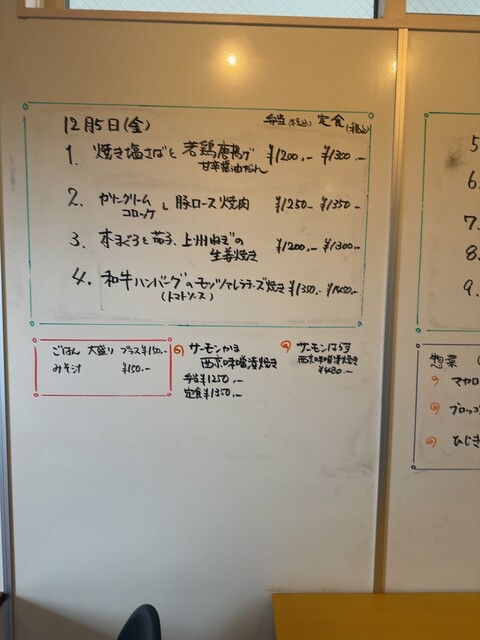 12月5日(金) 弁当(税込) 定食(税込)
1. 焼き塩さばと若鶏唐揚げ ¥1200.- ¥1300.-
甘辛醤油だれ
2. カリークリーム と 豚ロース焼肉 ¥1250.- ¥1350.-
コロッケ
3. 本まぐろと茄子、上州ねぎの ¥1200.- ¥1300.-
生姜焼き
4. 和牛ハンバーグのモッツァレラチーズ焼き ¥1350.- ¥1450.-
(トマトソース)
ごはん 大盛り プラス¥150.-
みそ汁 ¥150.-
サーモンかま
西京味噌漬焼き
弁当¥1250.-
定食¥1350.-
サーモンはらす
西京味噌漬焼き
¥480.-
5
6.
7.
8.
9.
惣菜
マヤロ
ブロッコ
ひじき